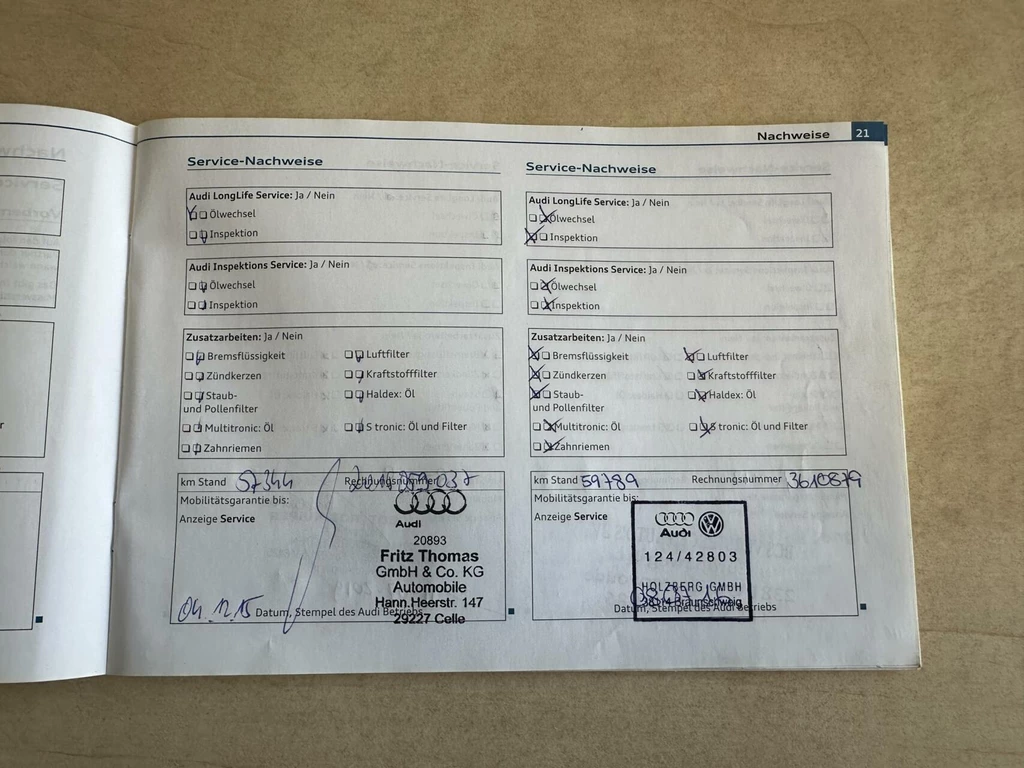 Nachweise 21
Service-Nachweise
Audi LongLife Service: Ja / Nein
Ölwechsel
Inspektion
Audi Inspektions Service: Ja / Nein
Ölwechsel
Inspektion
Zusatzarbeiten: Ja / Nein
Bremsflüssigkeit Luftfilter
Zündkerzen Kraftstofffilter
Staub- Haldex: Öl
und Pollenfilter
Multitronic: Öl S tronic: Öl und Filter
Zahnriemen
km Stand 57344 Rechnungsnummer
Mobilitätsgarantie bis:
Anzeige Service
Audi
20893
Fritz Thomas
GmbH & Co. KG
Automobile
Hann.Heerstr. 147
29227 Celle
04.12.15
Datum, Stempel des Audi Betriebs
Service-Nachweise
Audi LongLife Service: Ja / Nein
Ölwechsel
Inspektion
Audi Inspektions Service: Ja / Nein
Ölwechsel
Inspektion
Zusatzarbeiten: Ja / Nein
Bremsflüssigkeit Luftfilter
Zündkerzen Kraftstofffilter
Staub- Haldex: Öl
und Pollenfilter
Multitronic: Öl S tronic: Öl und Filter
Zahnriemen
km Stand 59789 Rechnungsnummer 3610879
Mobilitätsgarantie bis:
Anzeige Service
Audi
124/42803
HOLZBERG GMBH
Braunschweig
Datum, Stempel des Audi Betriebs